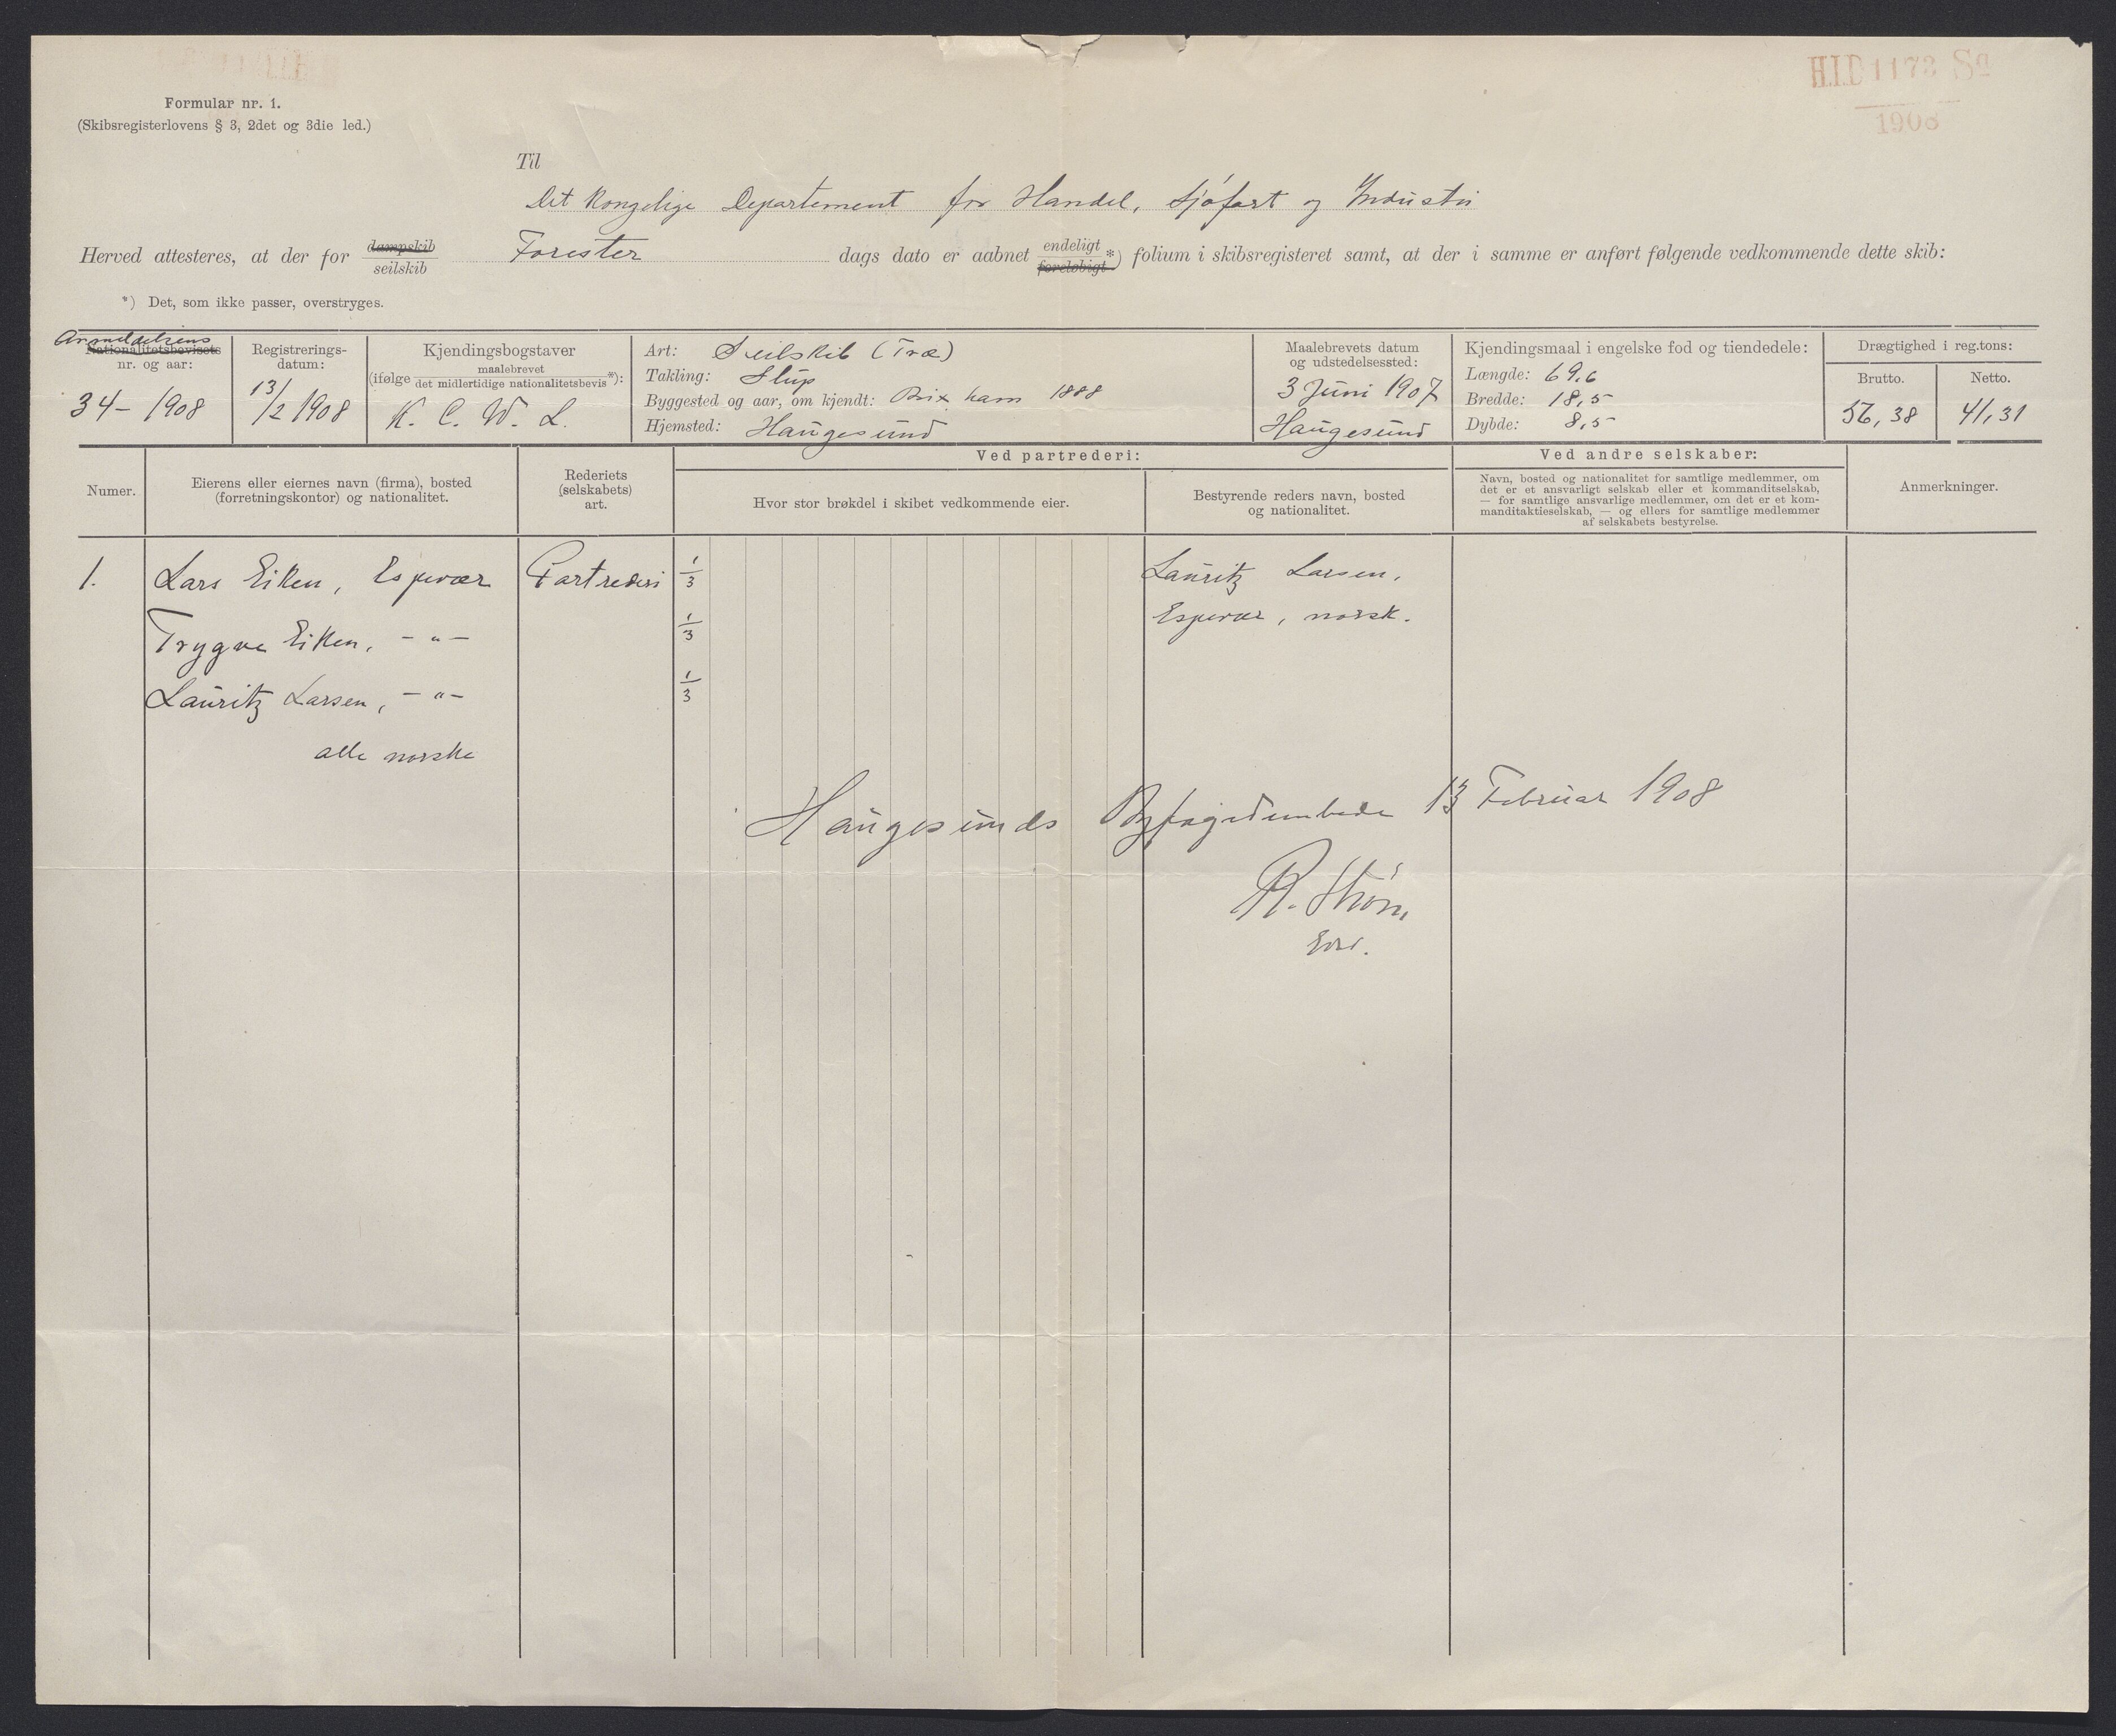 H.I.D 1173 Sa
1908
Formular nr. 1.
(Skibsregisterlovens § 3, 2det og 3die led.)
Til
Det Kongelige Departement for Handel, Sjøfart og Industri
Herved attesteres, at der for dampskib seilskib Forester dags dato er aabnet endeligt foreløbigt *) folium i skibsregisteret samt, at der i samme er anført følgende vedkommende dette skib:
*) Det, som ikke passer, overstryges.
Anmeldelsens
Nationalitetsbevisets
nr. og aar:
34 - 1908
Registrerings-
datum:
13/2 1908
Kjendingsbogstaver
(ifølge maalebrevet det midlertidige nationalitetsbevis *):
K. C. W. L.
Art: Seilskib (Træ)
Takling: Slup
Byggested og aar, om kjendt: Brixham 1888
Hjemsted: Haugesund
Maalebrevets datum
og udstedelsessted:
3 Juni 1907
Haugesund
Kjendingsmaal i engelske fod og tiendedele:
Længde: 69,6
Bredde: 18,5
Dybde: 8,5
Drægtighed i reg.tons:
Brutto.
56,38
Netto.
41,31
Numer.
Eierens eller eiernes navn (firma), bosted
(forretningskontor) og nationalitet.
Rederiets
(selskabets)
art.
Ved partrederi:
Hvor stor brøkdel i skibet vedkommende eier.
Bestyrende reders navn, bosted
og nationalitet.
Ved andre selskaber:
Navn, bosted og nationalitet for samtlige medlemmer, om
det er et ansvarligt selskab eller et kommanditselskab,
— for samtlige ansvarlige medlemmer, om det er et kom-
manditaktieselskab, — og ellers for samtlige medlemmer
af selskabets bestyrelse.
Anmerkninger.
1. Lars Eiken, Espevær Partrederi 1/3 Lauritz Larsen,
Trygve Eiken, - " - 1/3 Espevær, norsk.
Lauritz Larsen, - " - 1/3
alle norske
Haugesunds Byfogedembede 13 Februar 1908
R. Strøm